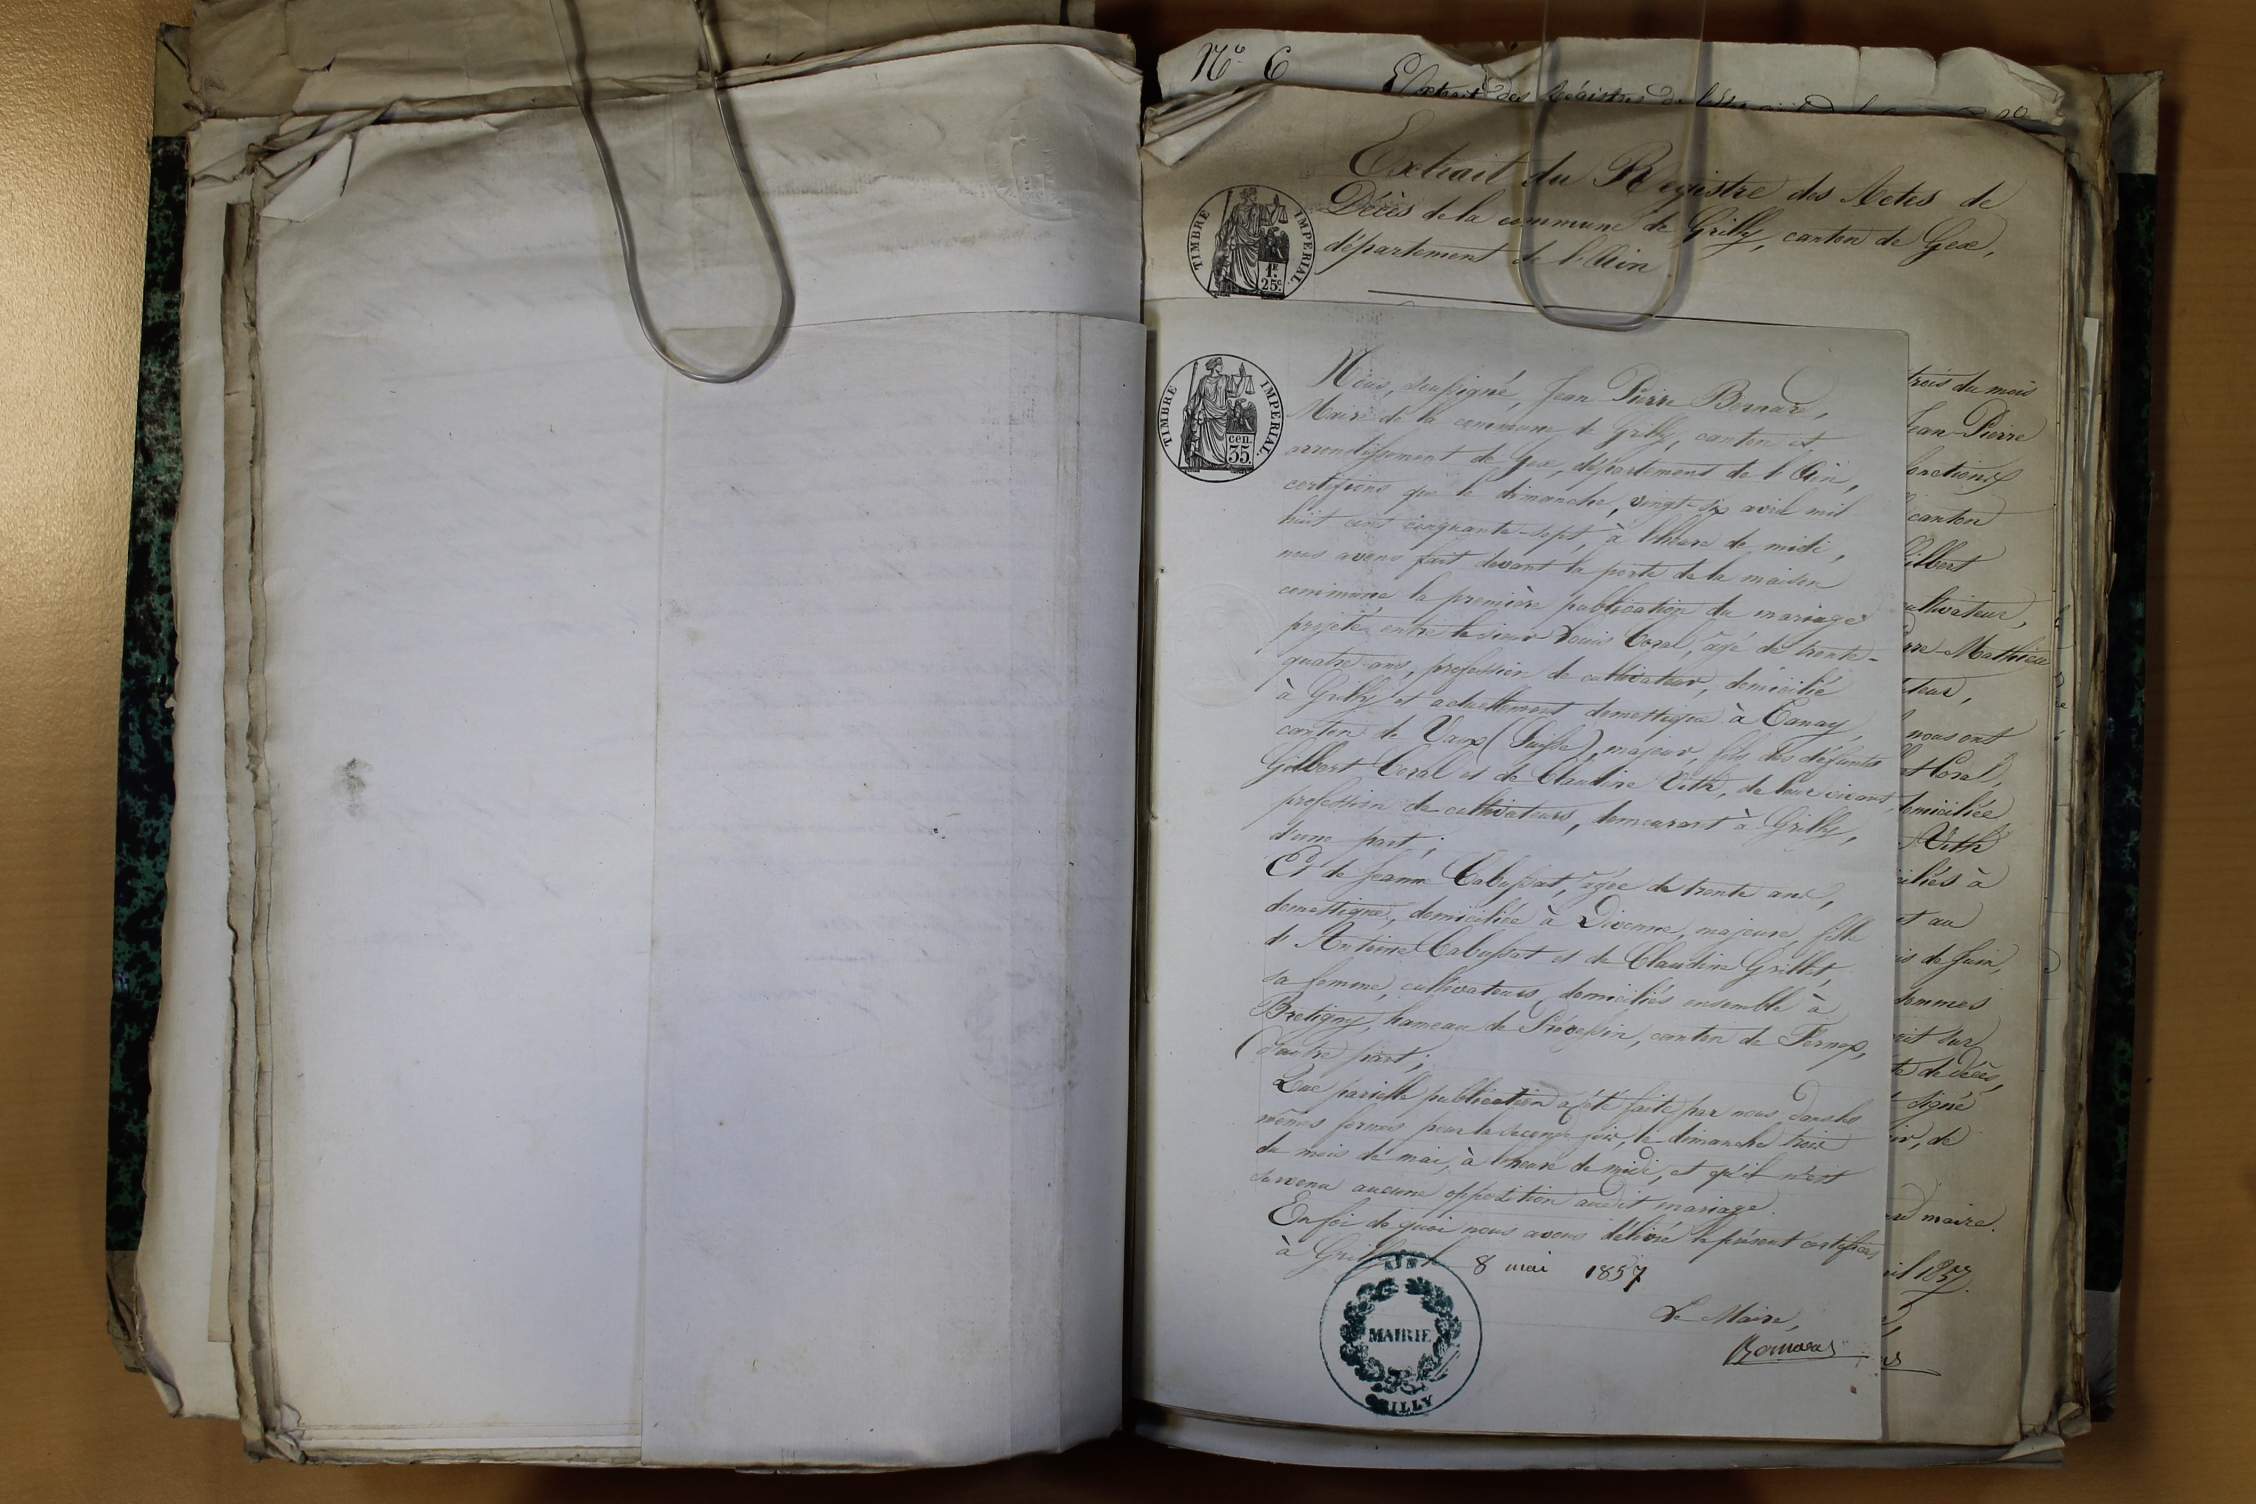 N° 6
Extrait des Régistres de
Extrait du Registre des Actes de
Décès de la commune de Grilly, canton de Gex,
département de l'Ain
TIMBRE IMPERIAL.
1F. 25c.
TIMBRE IMPERIAL.
cen. 35.
Nous, soussigné, Jean Pierre Bernard,
Maire de la commune de Grilly, canton et
arrondissement de Gex, département de l'Ain,
certifions que le dimanche, vingt-six avril mil
huit cent cinquante-sept, à l'heure de midi,
nous avons fait devant la porte de la maison
commune la première publication du mariage
projeté entre le sieur Louis Coral, âgé de trente-
quatre ans, profession de cultivateur, domicilié
à Grilly et actuellement domestique à Tanay,
canton de Vaux (Suisse), majeur, fils des défunts
Gilbert Coral et de Claudine Vith, de leur vivant
profession de cultivateurs, demeurant à Grilly,
d'une part;
Et de Jeanne Cabussat, âgée de trente ans,
domestique, domiciliée à Divonne, majeure, fille
d'Antoine Cabussat et de Claudine Grillet,
sa femme, cultivateurs, domiciliés ensemble à
Bretigny, hameau de Prévessin, canton de Fernex,
d'autre part;
Que pareille publication a été faite par nous dans les
mêmes formes pour la seconde fois, le dimanche trois
du mois de mai, à l'heure de midi, et qu'il n'est
survenu aucune opposition audit mariage.
En foi de quoi nous avons délivré le présent certificat
à Grilly le 8 mai 1857
Le Maire,
Bernard
AIN
MAIRIE
GRILLY
trois du mois
Jean-Pierre
fonctions
canton
Gilbert
cultivateur,
Mathieu
nous ont
Coral,
domiciliée
Vith
à
et au
de Juin,
sommes
sur
de décès,
signé
de
maire.
1857.